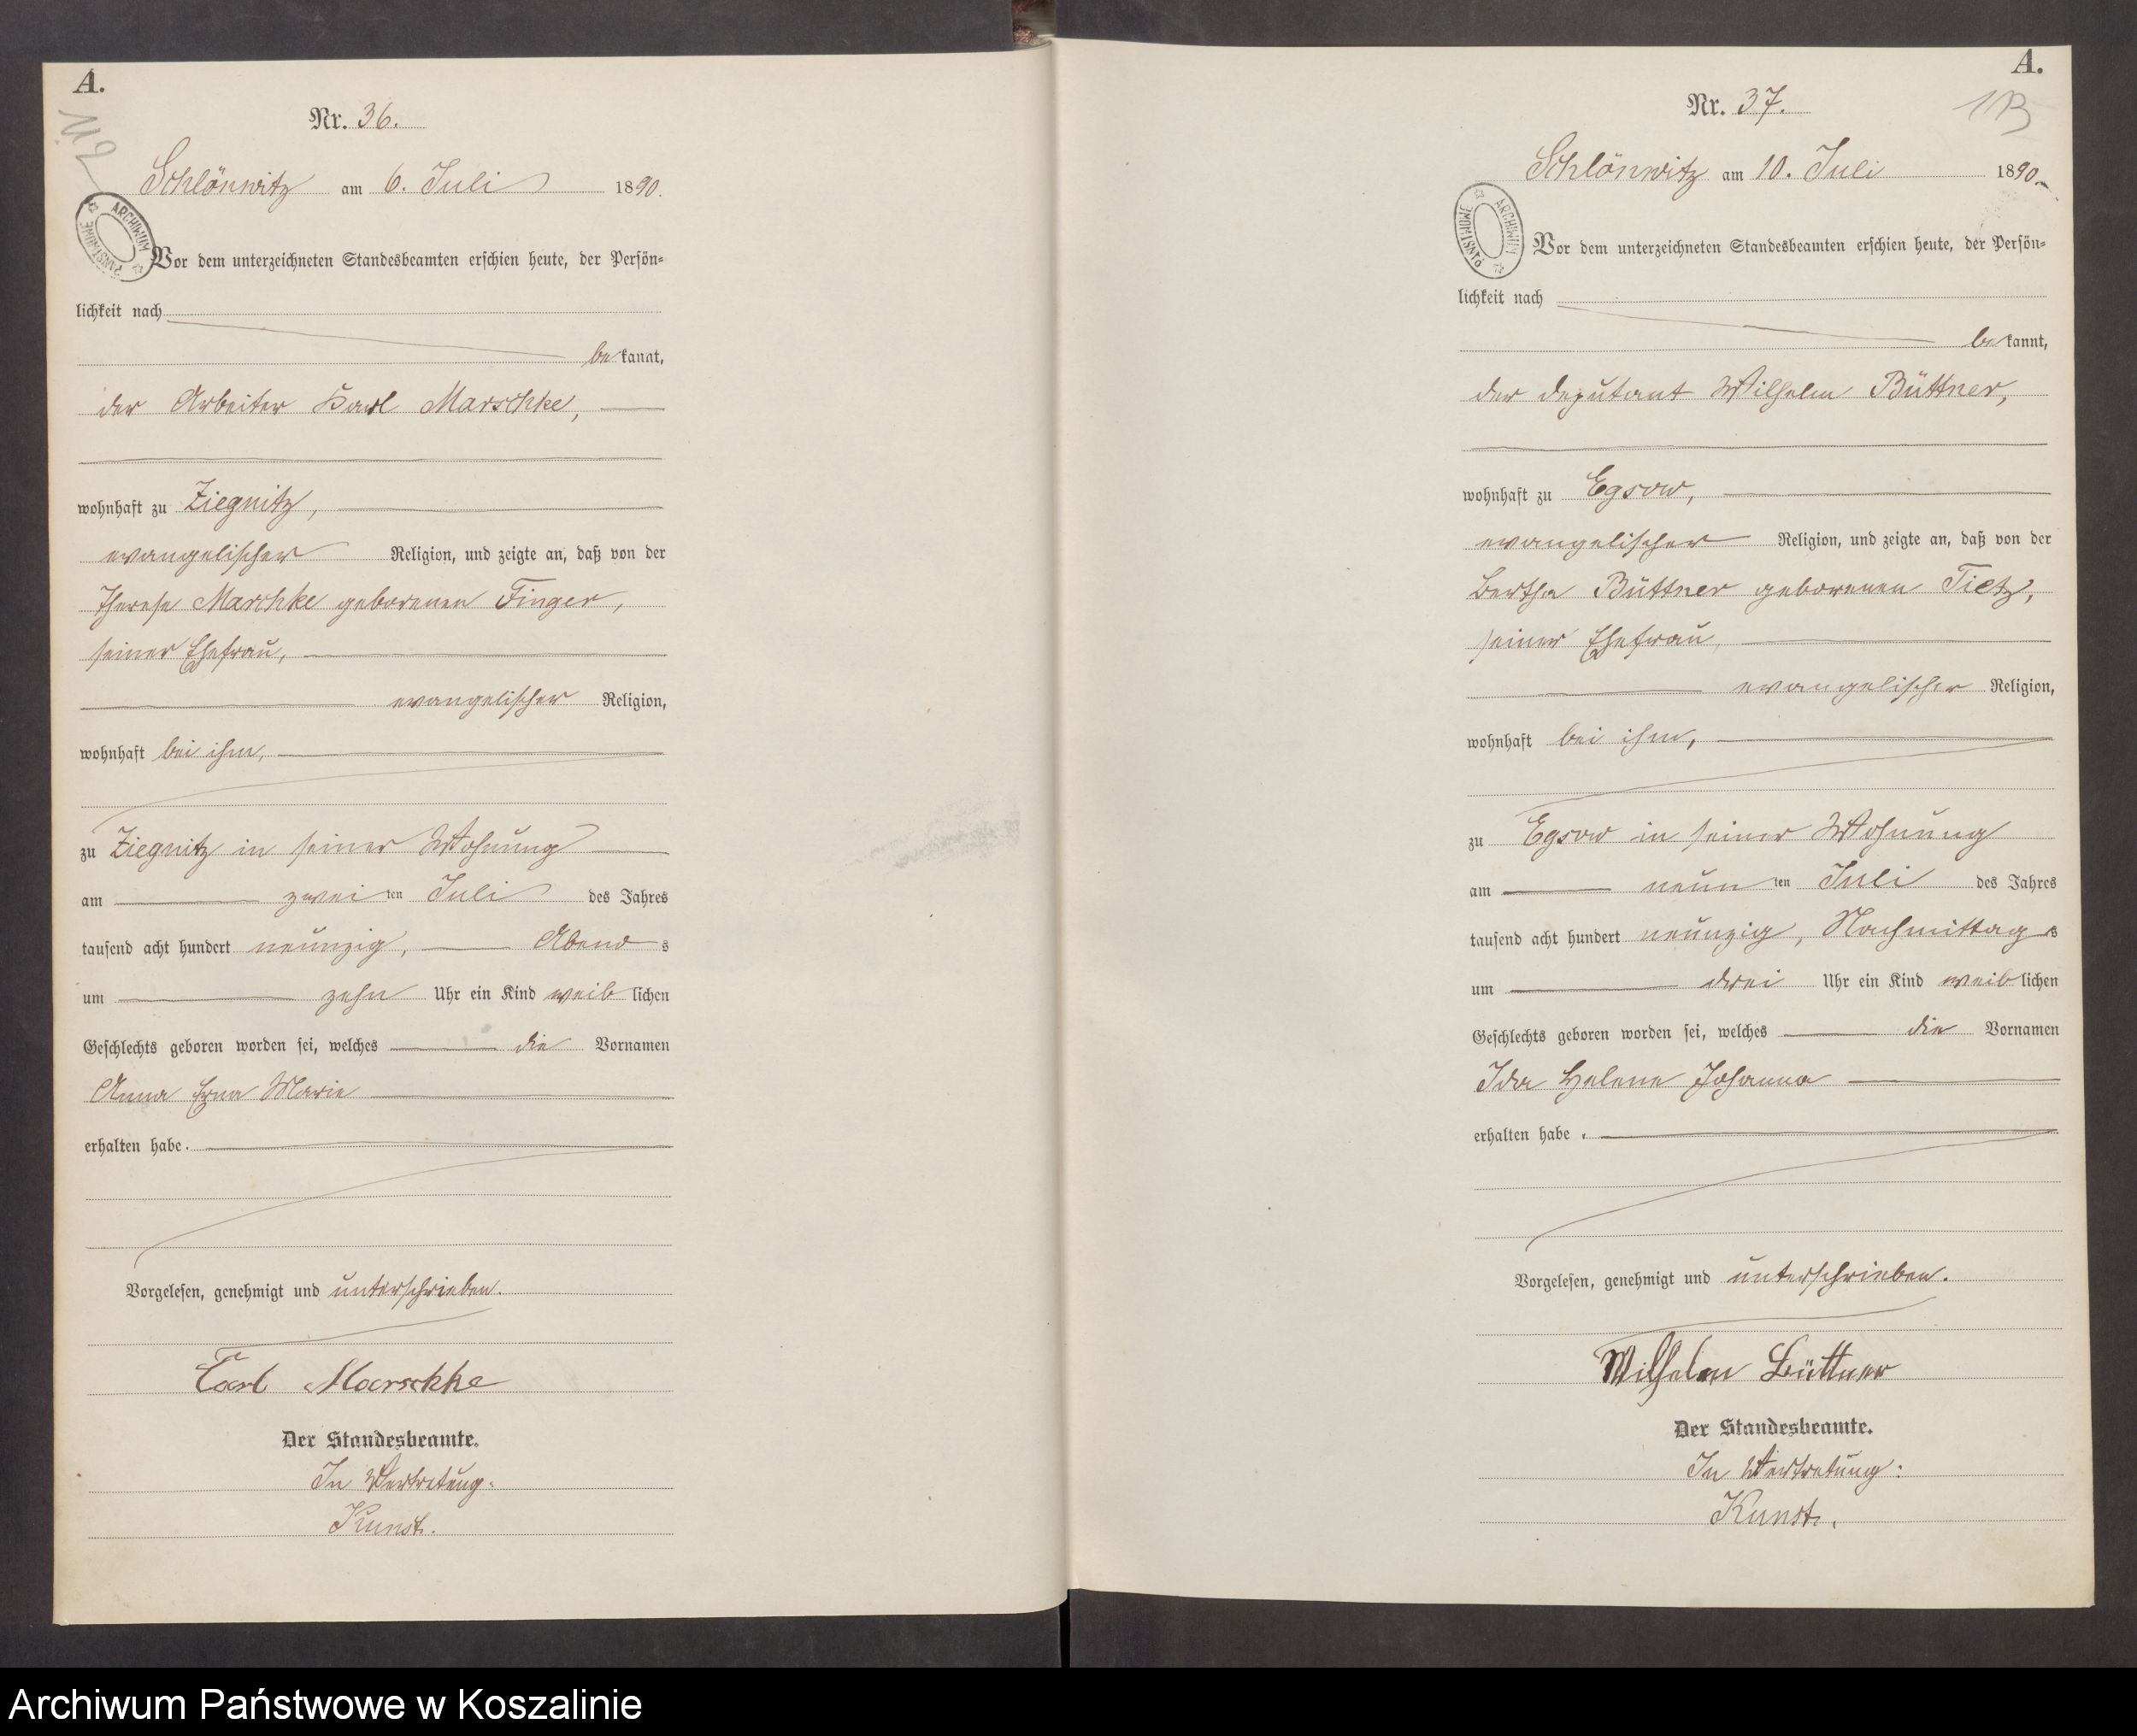 A.
112
Nr. 36.
Schlönwitz am 6. Juli 1890.
ARCHIWUM PAŃSTWOWE
Vor dem unterzeichneten Standesbeamten erschien heute, der Persön-
lichkeit nach
bekannt,
der Arbeiter Karl Marschke,
wohnhaft zu Ziegnitz,
evangelischer Religion, und zeigte an, daß von der
Therese Marschke geborenen Finger,
seiner Ehefrau,
evangelischer Religion,
wohnhaft bei ihm,
zu Ziegnitz in seiner Wohnung
am zweiten Juli des Jahres
tausend acht hundert neunzig, Abends
um zehn Uhr ein Kind weiblichen
Geschlechts geboren worden sei, welches die Vornamen
Anna Erna Marie
erhalten habe.
Vorgelesen, genehmigt und unterschrieben.
Carl Marschke
Der Standesbeamte.
In Vertretung.
Kunst.
A.
113
Nr. 37.
Schlönwitz am 10. Juli 1890.
ARCHIWUM PAŃSTWOWE
Vor dem unterzeichneten Standesbeamten erschien heute, der Persön-
lichkeit nach
bekannt,
der Deputant Wilhelm Büttner,
wohnhaft zu Egsow,
evangelischer Religion, und zeigte an, daß von der
Bertha Büttner geborenen Tietz,
seiner Ehefrau,
evangelischer Religion,
wohnhaft bei ihm,
zu Egsow in seiner Wohnung
am neunten Juli des Jahres
tausend acht hundert neunzig, Nachmittags
um drei Uhr ein Kind weiblichen
Geschlechts geboren worden sei, welches die Vornamen
Ida Helene Johanna
erhalten habe.
Vorgelesen, genehmigt und unterschrieben.
Wilhelm Büttner
Der Standesbeamte.
In Vertretung:
Kunst.
Archiwum Państwowe w Koszalinie